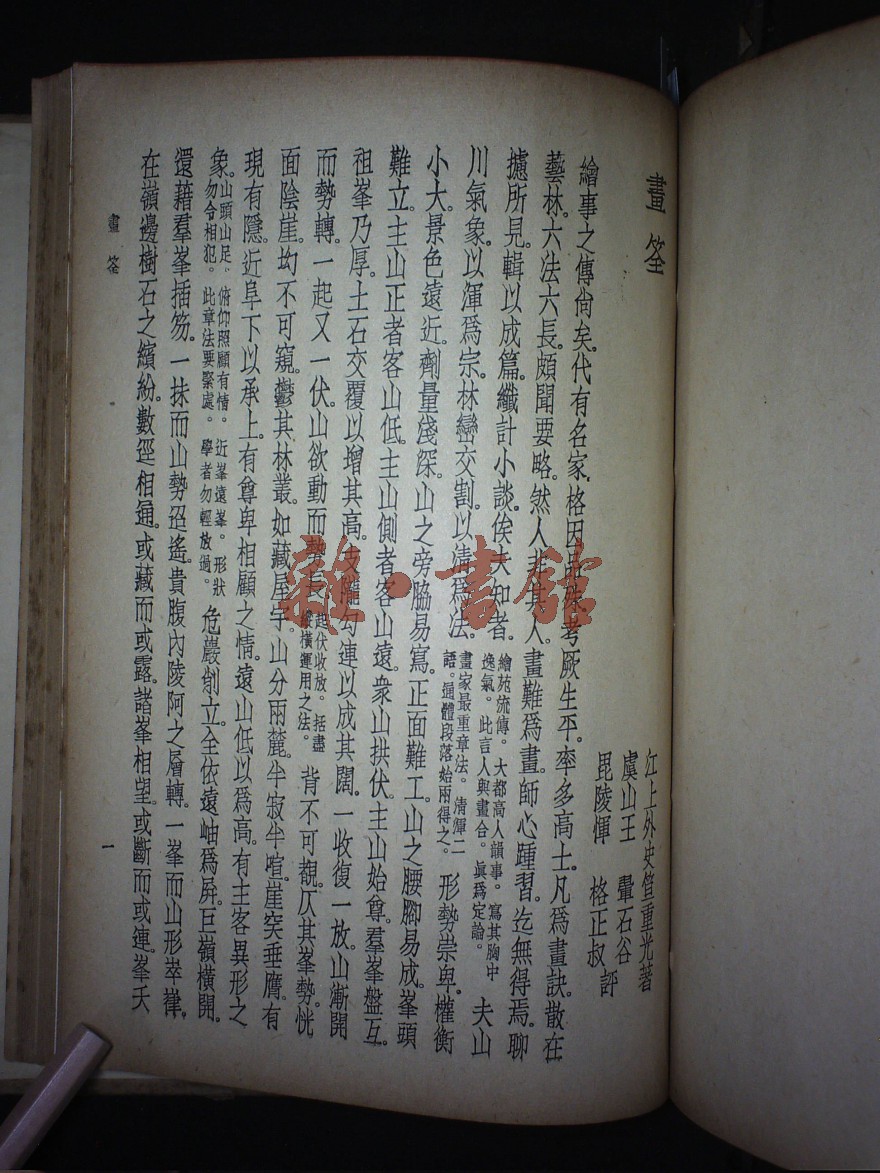 畫筌
江上外史笪重光著
虞山王　翬石谷
毘陵惲　格正叔　評
繪事之傳尙矣。代有名家。格因品殊。考厥生平。率多高士。凡爲畫訣。散在
藝林。六法六長。頗聞要略。然人非其人。畫難爲畫。師心踵習。迄無得焉。聊
攄所見。輯以成篇。纖計小談。俟夫知者。繪苑流傳。大都高人韻事。寫其胸中逸氣。此言人與畫合。眞爲定論。夫山
川氣象。以渾爲宗。林巒交割。以淸爲法。畫家最重章法。淸渾二語。通體段落始兩得之。形勢崇卑。權衡
小大。景色遠近。劑量淺深。山之旁脇易寫。正面難工。山之腰腳易成。峯頭
難立。主山正者客山低。主山側者客山遠。衆山拱伏。主山始尊。羣峯盤互。
祖峯乃厚。土石交覆以增其高。支隴勾連以成其闊。一收復一放。山漸開
而勢轉。一起又一伏。山欲動而勢長。起伏收放。括盡縱橫運用之法。背不可覩。仄其峯勢。恍
面陰崖。坳不可窺。鬱其林叢。如藏屋宇。山分兩麓。半寂半喧。崖突垂膺。有
現有隱。近阜下以承上。有尊卑相顧之情。遠山低以爲高。有主客異形之
象。山頭山足。俯仰照顧有情。近峯遠峯。形狀勿令相犯。此章法要緊處。學者勿輕放過。危巖削立。全依遠岫爲屛。巨嶺橫開。
還藉羣峯插笏。一抹而山勢迢遙。貴腹內陵阿之層轉。一峯而山形崒嵂。
在嶺邊樹石之繽紛。數逕相通。或藏而或露。諸峯相望。或斷而或連。峯夭
畫筌
一
雜·書館